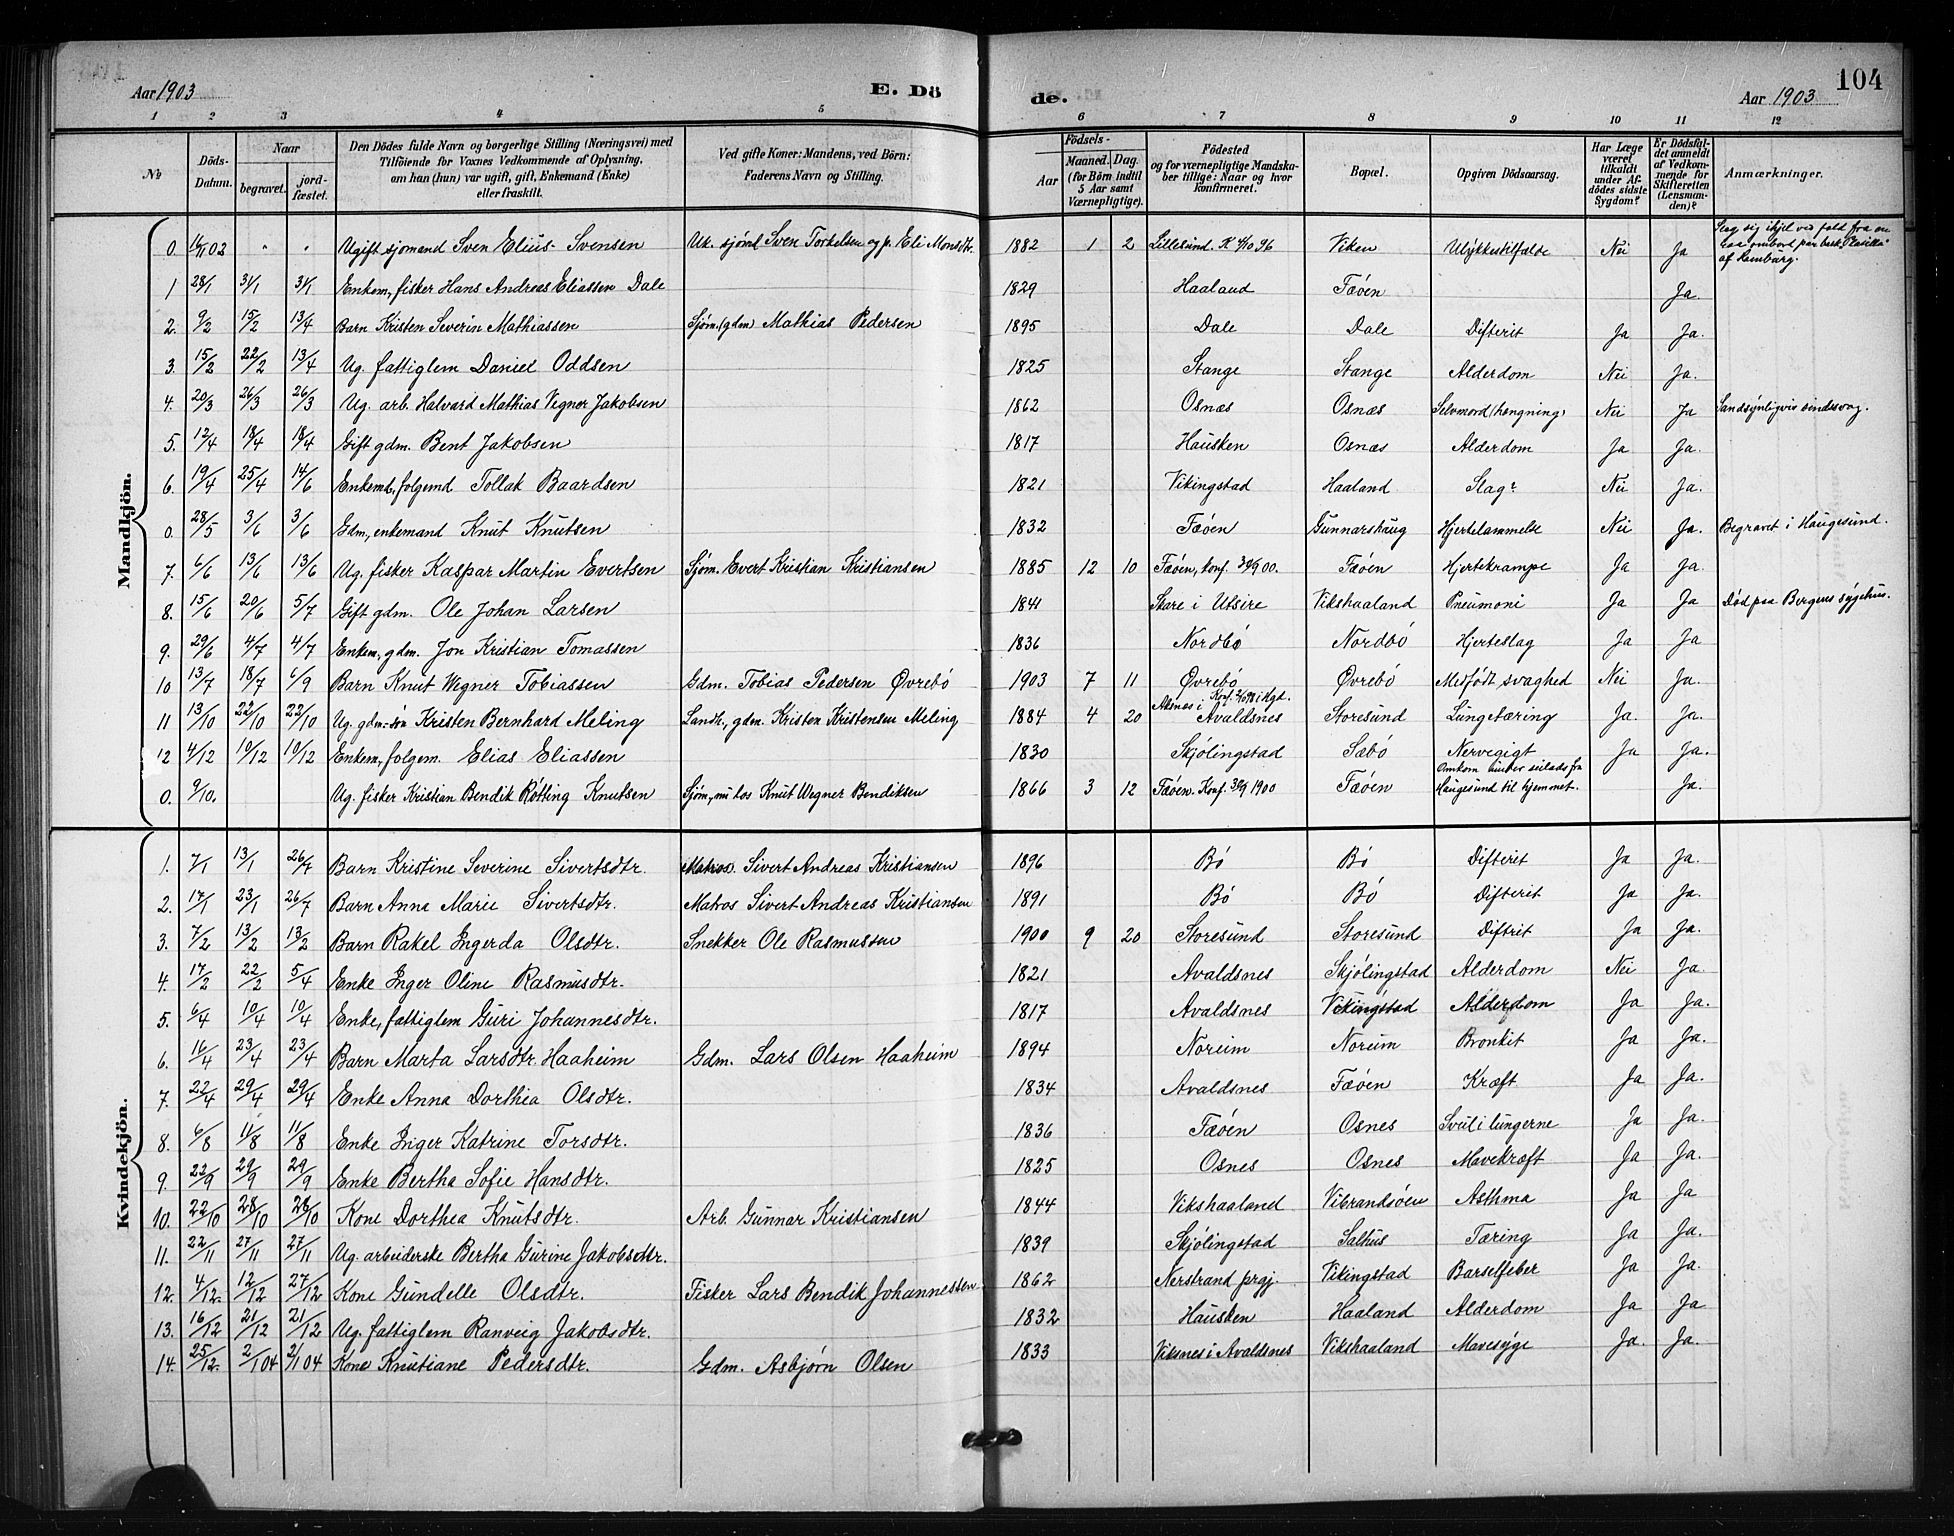 Aar 1903
E. Dö
de.
Aar 1903
104
1 2 3 4 5 6 7 8 9 10 11 12
No
Döds-Datum.
Naar
begravet.
jord-fæstet.
Den Dödes fulde Navn og borgerlige Stilling (Næringsvei) med
Tilföiende for Voxnes Vedkommende af Oplysning,
om han (hun) var ugift, gift, Enkemand (Enke)
eller fraskilt.
Ved gifte Koner: Mandens, ved Börn:
Faderens Navn og Stilling.
Födsels-
Aar
Maaned. Dag.
(for Börn indtil
5 Aar samt
Værnepligtige).
Födested
og for værnepligtige Mandska-
ber tillige: Naar og hvor
konfirmeret.
Bopæl.
Opgiven Dödsaarsag.
Har Læge
været
tilkaldt
under Af-
dödes sidste
Sygdom?
Er Dödsfal-
det anmeldt
af Vedkom-
mende for
Skifteretten
(Lensman-
den)?
Anmærkninger.
Mandkjön.
0. 03 Ugift sjømand Sven Elius Svensen Uk. sjømd Sven Torkelsen og p. Eli Monsdtr. 1882 1 2 Lillesund K 4/10 96 Viken Ulykkestilfælde Nei Ja Slag sig ihjel ved fald fra en raa ombord paa bark af Hamburg.
1 28/1 31/1 31/1 Enkem., fisker Hans Andreas Eliassen Dale 1829 Haaland Fæøen Ja.
2. 9/2 15/2 13/4 Barn Kristen Severin Mathiassen Sjøm. (gdm) Mathias Pedersen 1895 Dale Dale Difterit Ja Ja.
3. 15/2 22/2 13/4 Ug. fattiglem Daniel Oddsen 1825 Stange Stange Alderdom Nei Ja.
4. 20/3 26/3 26/3 Ug. arb. Halvard Mathias Vegner Jakobsen 1862 Osnæs Osnæs Selvmord (hængning) Nei Ja Sandsynligvis sindssvag.
5. 12/4 18/4 18/4 Gift gdm. Bent Jakobsen 1817 Hausken Osnæs Alderdom Ja Ja.
6. 19/4 25/4 14/6 Enkemd., folgemd Tollak Baardsen 1821 Vikingstad Haaland Slag Nei Ja.
0. 28/5 3/6 3/6 Gdm., enkemand Knut Knutsen 1832 Fæøen Gunnarshaug Hjertelammelse Nei Ja. Begravet i Haugesund.
7. 6/6 13/6 13/6 Ug. fisker Kaspar Martin Evertsen Sjøm. Evert Kristian Kristiansen 1885 12 10 Fæøen, konf. 30/9 00. Fæøen Hjertekrampe Ja Ja.
8. 15/6 20/6 5/7 Gift gdm. Ole Johan Larsen 1841 Skare i Utsire Vikshaaland Pneumoni Ja Ja Død paa Bergens sygehus.
9. 29/6 4/7 4/7 Enkem., gdm. Jon Kristian Tomassen 1836 Nordbö Nordbö Hjerteslag Ja Ja
10 13/7 18/7 6/9 Barn Knut Wegner Tobiassen Gdm. Tobias Pedersen Øvrebö 1903 7 11 Øvrebö Øvrebö Medfödt svaghed Nei Ja.
11 13/10 22/10 22/10 Ug. gdm.-søn Kristen Bernhard Meling Landh., gdm. Kristen Kristensen Meling 1884 4 20 Avaldsnes Storesund Lungetæring Ja. Ja.
12 4/12 10/12 10/12 Enkem., folgem. Elias Eliassen 1830 Skjölingstad Sæbö Nervegigt Ja Ja.
0. 9/10. Ug. fisker Kristian Bendik Rötting Knutsen Sjøm., nu los Knut Wegner Bendiksen 1866 3 12 Fæøen. Konf. 30/9 1900 Fæøen Omkom under seilads fra Haugesund til hjemmet. Ja.
Kvindekjön.
1. 7/1 13/1 26/7 Barn Kristine Severine Sivertsdtr. Matros Sivert Andreas Kristiansen 1896 Bö Bö Difterit Ja Ja.
2. 17/1 23/1 26/7 Barn Anna Marie Sivertsdtr. Matros Sivert Andreas Kristiansen 1891 Bö Bö Difterit Ja Ja.
3. 7/2 13/2 13/2 Barn Rakel Ingerda Olsdtr. Snekker Ole Rasmussen 1900 9 20 Storesund Storesund Diftrit Ja Ja.
4. 17/2 22/2 5/4 Enke Inger Oline Rasmusdtr. 1821 Avaldsnes Skjölingstad Alderdom Nei Ja.
5. 6/4 10/4 10/4 Enke, fattiglem Guri Johannesdtr. 1817 Avaldsnes Vikingstad Alderdom Ja Ja.
6. 16/4 23/4 23/4 Barn Marta Larsdtr. Haaheim Gdm. Lars Olsen Haaheim 1894 Noreim Noreim Bronkit Ja Ja.
7. 22/4 29/4 29/4 Enke Anna Dorthea Olsdtr. 1834 Avaldsnes Fæøen Kræft Ja Ja.
8. 6/8 11/8 11/8 Enke Inger Katrine Torsdtr. 1836 Fæøen Osnes Svul i lungerne Ja Ja.
9. 22/9 29/9 29/9 Enke Bertha Sofie Hansdtr. 1825 Osnes Osnes Mavekræft Ja Ja.
10. 22/10 28/10 28/10 Kone Dorthea Knutsdtr. Arb. Gunnar Kristiansen 1844 Vikshaaland Vibrandsöen Asthma Ja Ja
11. 22/11 27/11 27/11 Ug. arbeiderske Bertha Gurine Jakobsdtr. 1839 Skjölingstad Salhus Tæring Ja Ja.
12. 4/12. 12/12 27/12 Kone Gundelle Olsdtr. Fisker Lars Bendik Johannessen 1862 Nerstrand prgj. Vikingstad Barselfeber Ja Ja.
13. 16/12 21/12 21/12 Ug. fattiglem Ranveig Jakobsdtr. 1832 Hausken Haaland Alderdom Ja Ja
14. 25/12. 2/1 04 2/1 04 Kone Knutiane Pedersdtr. Gdm. Asbjørn Olsen 1833 Viksnes i Avaldsnes Vikshaaland Mavesyge Ja. Ja.